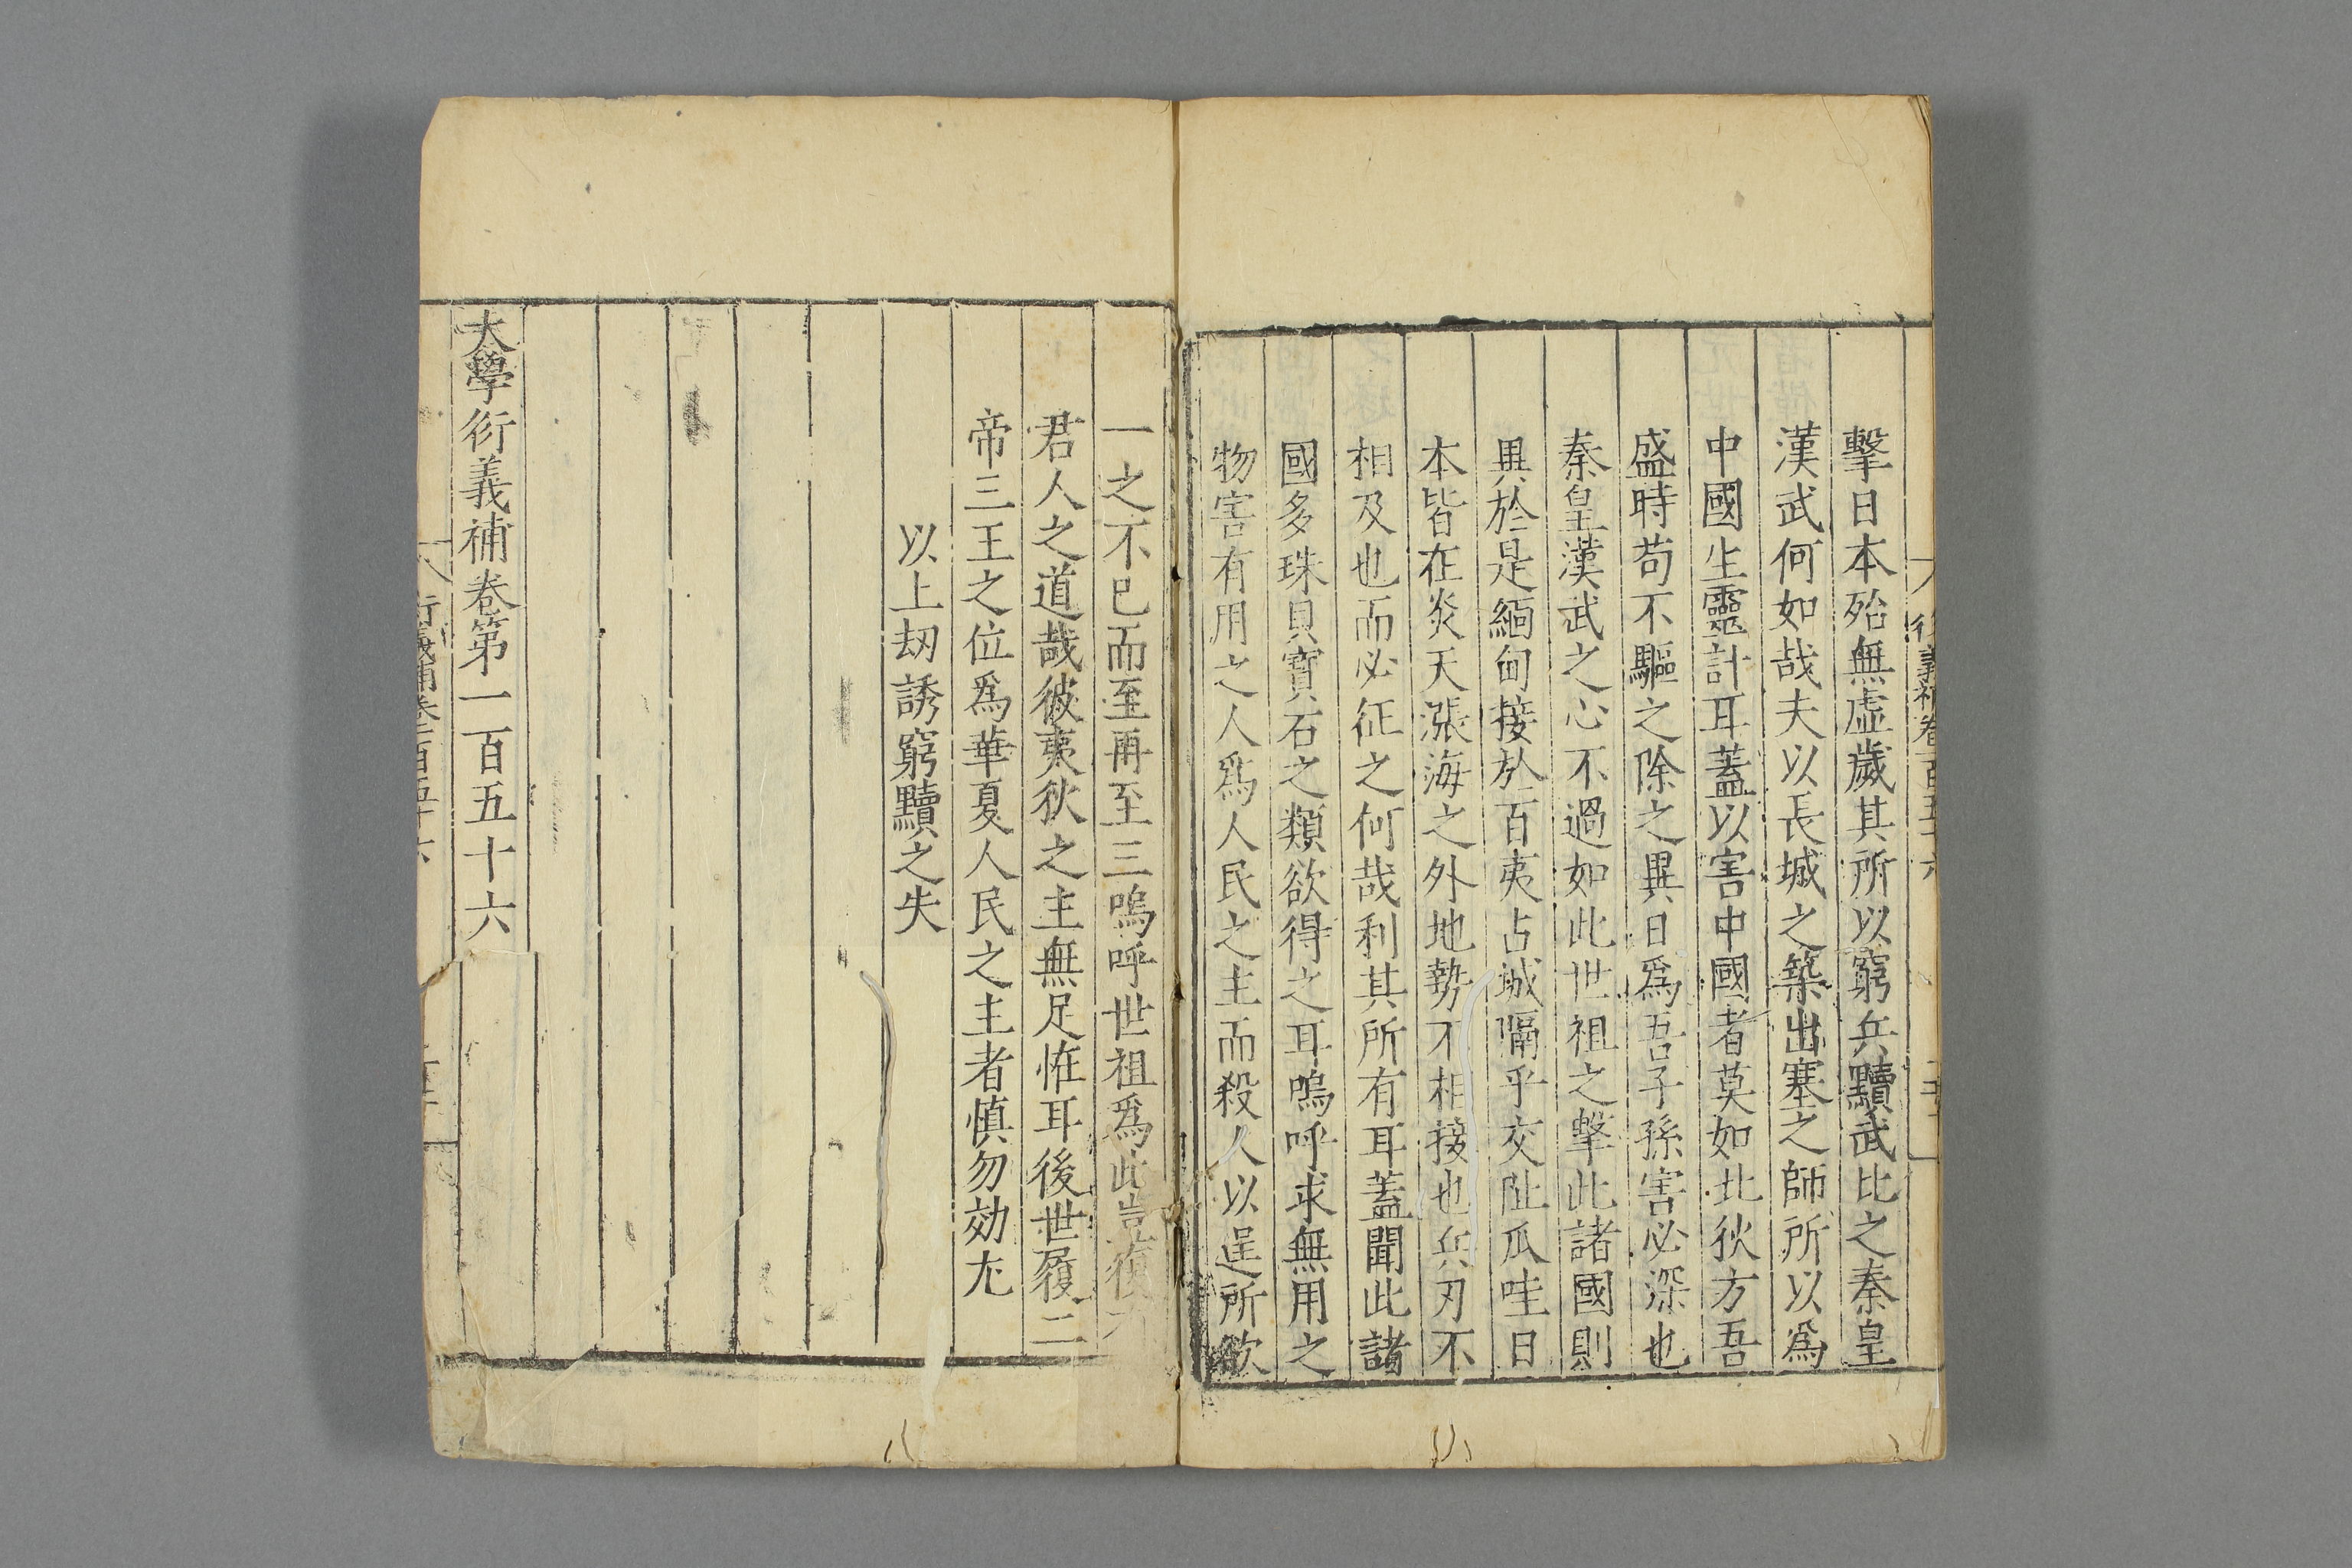 擊日本殆無虛歲其所以窮兵黷武比之秦皇
漢武何如哉夫以長城之築出塞之師所以爲
中國生靈計耳蓋以害中國者莫如北狄方吾
盛時苟不驅之除之異日爲吾子孫害必深也
秦皇漢武之心不過如此世祖之擊此諸國則
異於是緬甸接於百夷占城隔乎交阯瓜哇日
本皆在炎天漲海之外地勢不相接也兵刃不
相及也而必征之何哉利其所有耳蓋聞此諸
國多珠貝寶石之類欲得之耳嗚呼求無用之
物害有用之人爲人民之主而殺人以逞所欲
一之不已而至再至三嗚呼世祖爲此豈復
君人之道哉彼夷狄之主無足恠耳後世履二
帝三王之位爲華夏人民之主者慎勿効尤
以上刼誘窮黷之失
大學衍義補卷第一百五十六